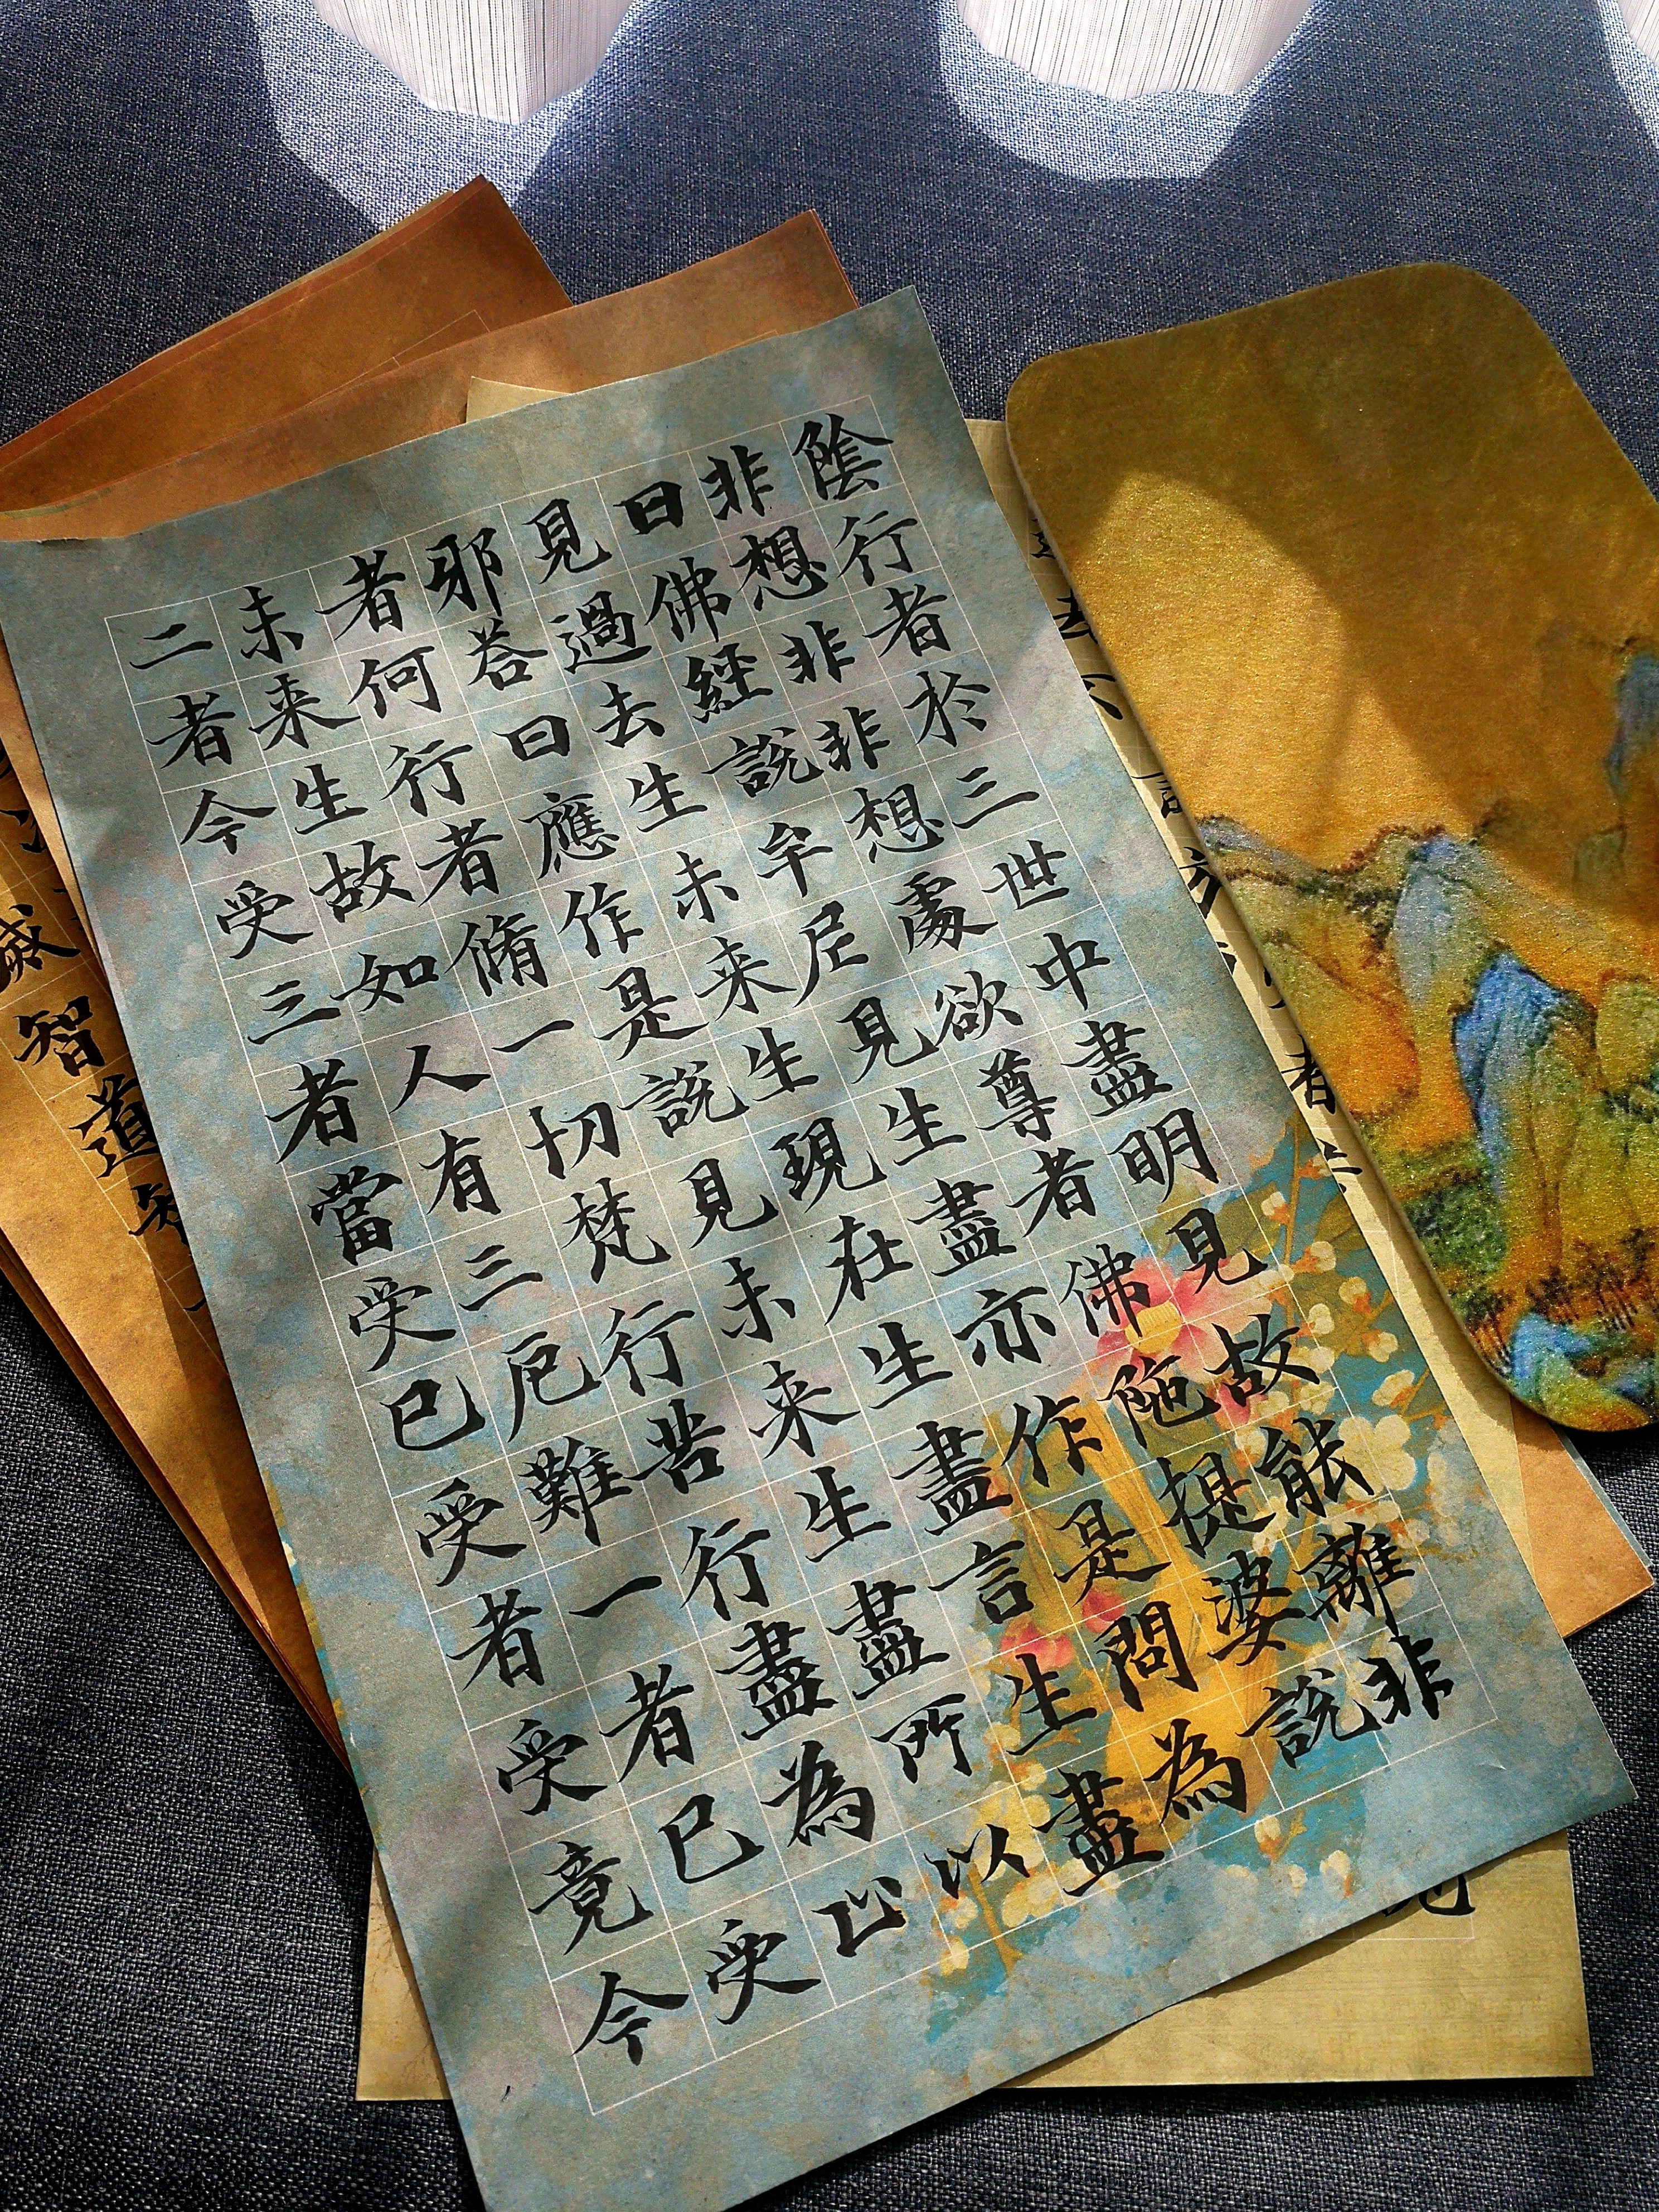 陰行者於三世中盡明見故能離非
非想非非想處欲尊者佛陁提婆說
曰佛經說牟尼見生盡亦作是問為
見過去生未来生現在生盡言生盡
邪荅曰應作是說見未来生盡所以
者何行者脩一切梵行苦行盡為止
未来生故如人有三厄難一者已受
二者今受三者當受已受者受竟今
智道